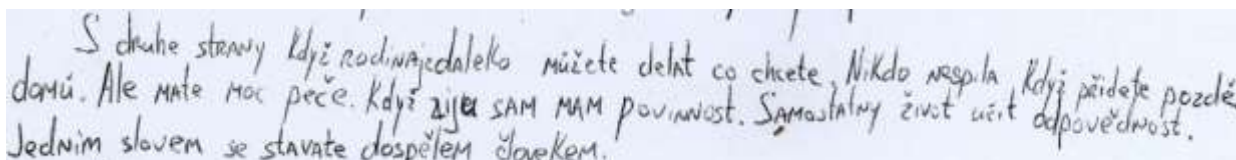 S druhe strany když rodina je daleko můžete delat co chcete. Nikdo nespila když přidete pozdě
domů. Ale mate moc peče. Když žiju sam mam povinnost. Samostatny život učit odpovědnost.
Jednim slovem se stavate dospělem človekem.